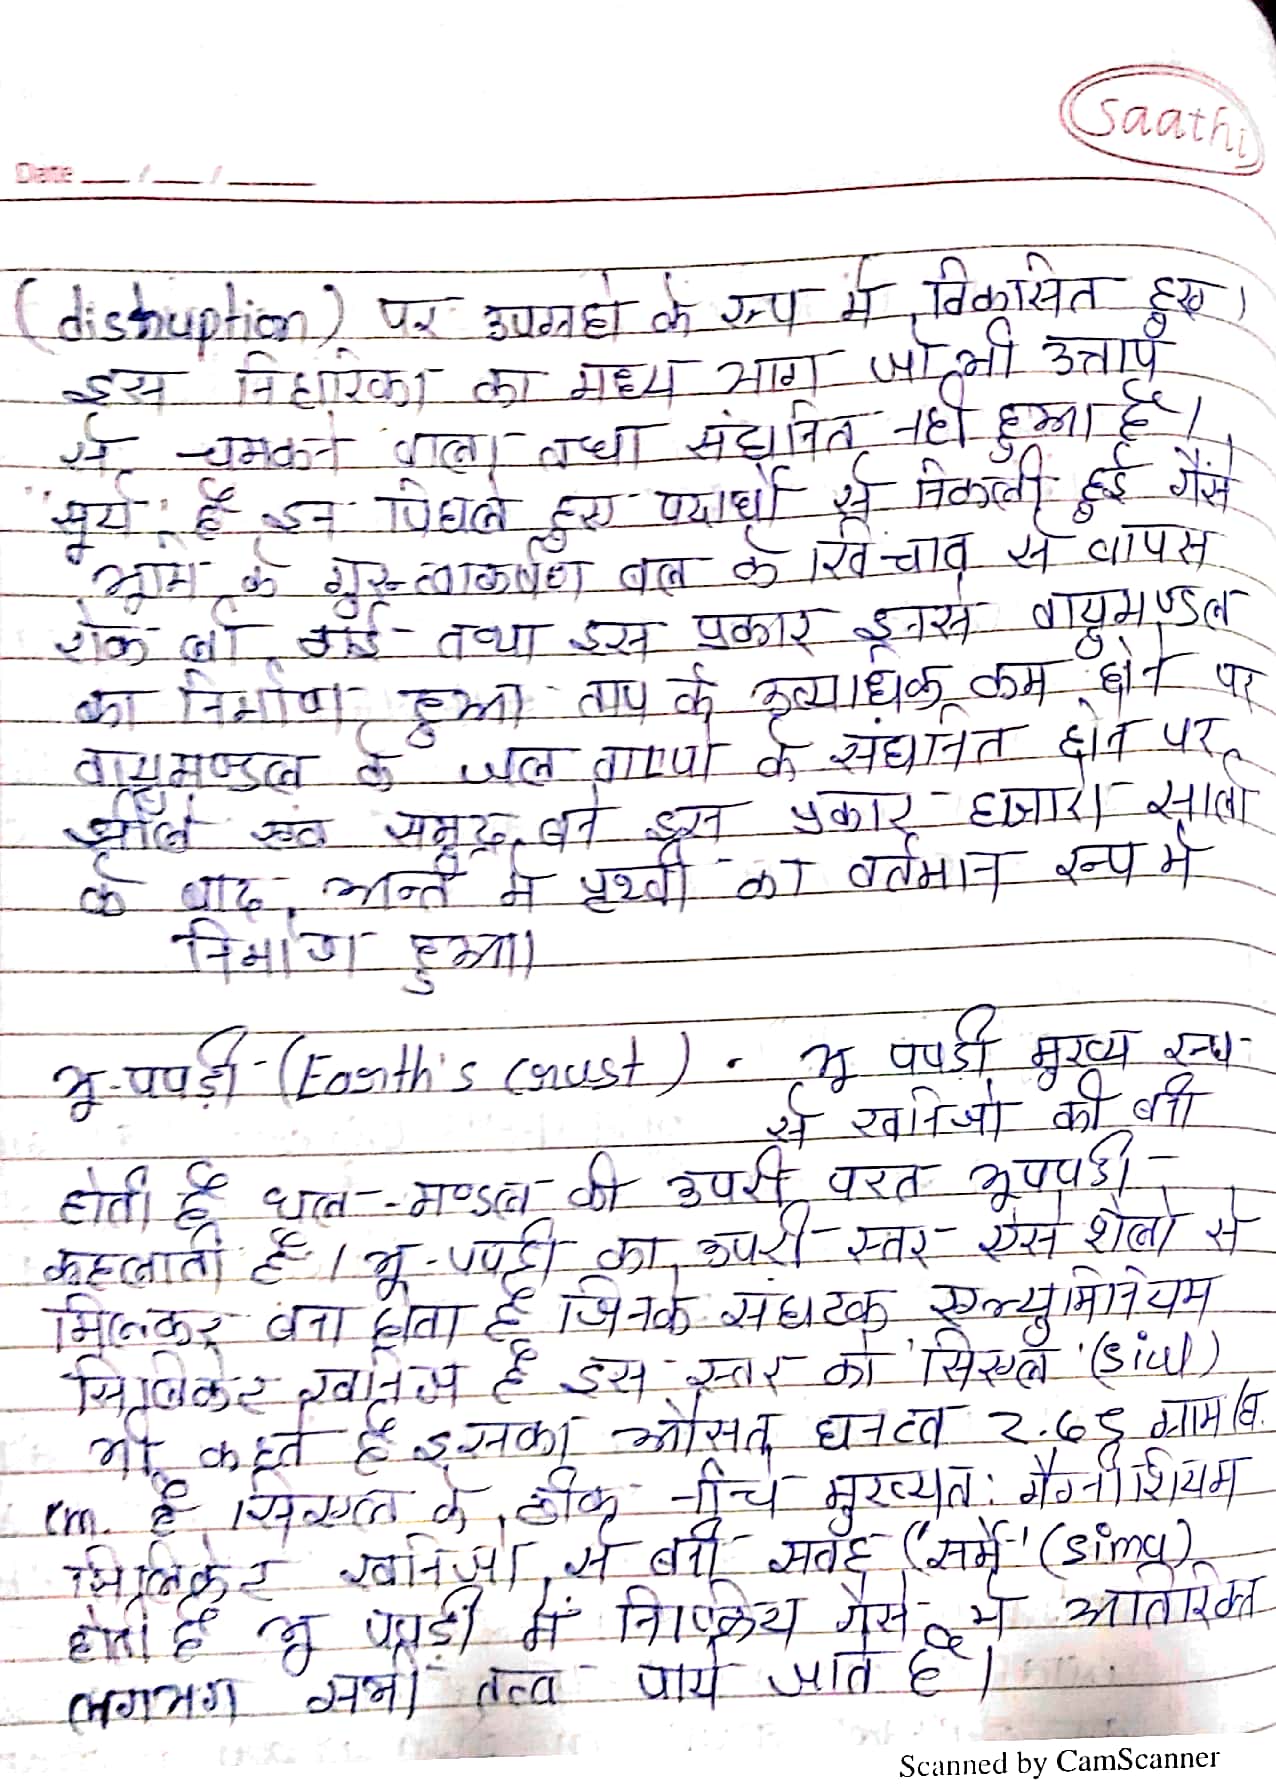 Saathi
Date __/__/____
(distruption) पर उपग्रहो के रूप मे विकसित हुए।
इस निहारिका का मध्य भाग जो भी उत्ताप
से चमकने वाला तथा संघनित नही हुआ है।
"सूर्य" है इन पिघले हुए पदार्थो से निकली हुई गैंसे
भूमि के गुरुत्वाकर्षण बल के खिंचाव से वापस
रोक ली गई तथा इस प्रकार इनसे वायुमण्डल
का निर्माण हुआ ताप के अत्याधिक कम होने पर
वायुमण्डल के जल वाष्पो के संघनित होने पर
झीले एवं समुद्र बने इस प्रकार हजारो सालो
के बाद अन्त मे पृथ्वी का वर्तमान रूप मे
निर्माण हुआ।
भू-पपड़ी-(Earth's crust). भू पपड़ी मुख्य रूप
से खनिजो की बनी
होती है थल-मण्डल की उपरी परत भूपपड़ी
कहलाती है। भू-पपड़ी का उपरी स्तर ऐसे शैलो से
मिलकर बना होता है जिनके संघटक एल्युमिनियम
सिलिकेट खनिज है इस स्तर को 'सिएल' (sial)
भी कहते है इसका औसत घनत्व 2.65 ग्राम/घ.
cm. है सिएल के ठीक नीचे मुख्यत: मैग्नीशियम
सिलिकेट खनिजो से बनी सतह ('समै' (sima)
होती है भू पपड़ी में निष्क्रिय गैसे के अतिरिक्त
लगभग सभी तत्व पाये जाते है।
Scanned by CamScanner